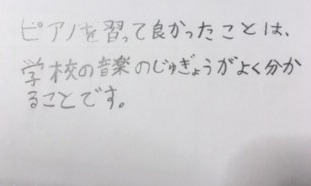 ピアノを習って良かったことは、
学校の音楽のじゅぎょうがよく分か
ることです。